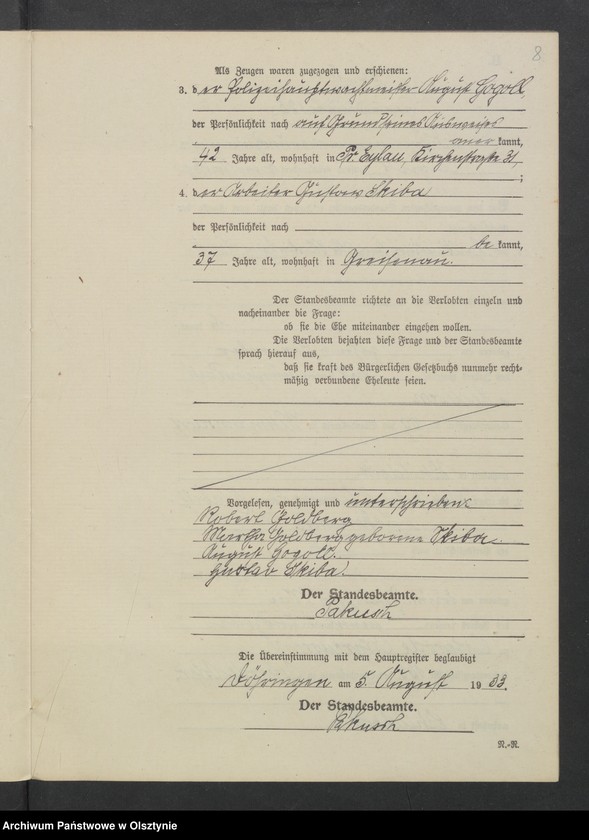 8
Als Zeugen waren zugezogen und erschienen:
3. der Polizeihauptwachtmeister August Gogoll,
der Persönlichkeit nach auf Grund seines Ausweises
aner kannt,
42 Jahre alt, wohnhaft in Pr. Eylau, Kirchenstraße 31,
;
4. der Arbeiter Gustav Skiba
der Persönlichkeit nach
be kannt,
37 Jahre alt, wohnhaft in Greisenau.
Der Standesbeamte richtete an die Verlobten einzeln und
nacheinander die Frage:
ob sie die Ehe miteinander eingehen wollen.
Die Verlobten bejahten diese Frage und der Standesbeamte
sprach hierauf aus,
daß sie kraft des Bürgerlichen Gesetzbuchs nunmehr recht-
mäßig verbundene Eheleute seien.
Vorgelesen, genehmigt und unterschrieben:
Robert Goldberg
Martha Goldberg geborene Skiba.
August Gogoll.
Gustav Skiba.
Der Standesbeamte.
Pakusch
Die Übereinstimmung mit dem Hauptregister beglaubigt
Döhringen am 5. August 1933.
Der Standesbeamte.
Pakusch
N.-R.
Archiwum Państwowe w Olsztynie